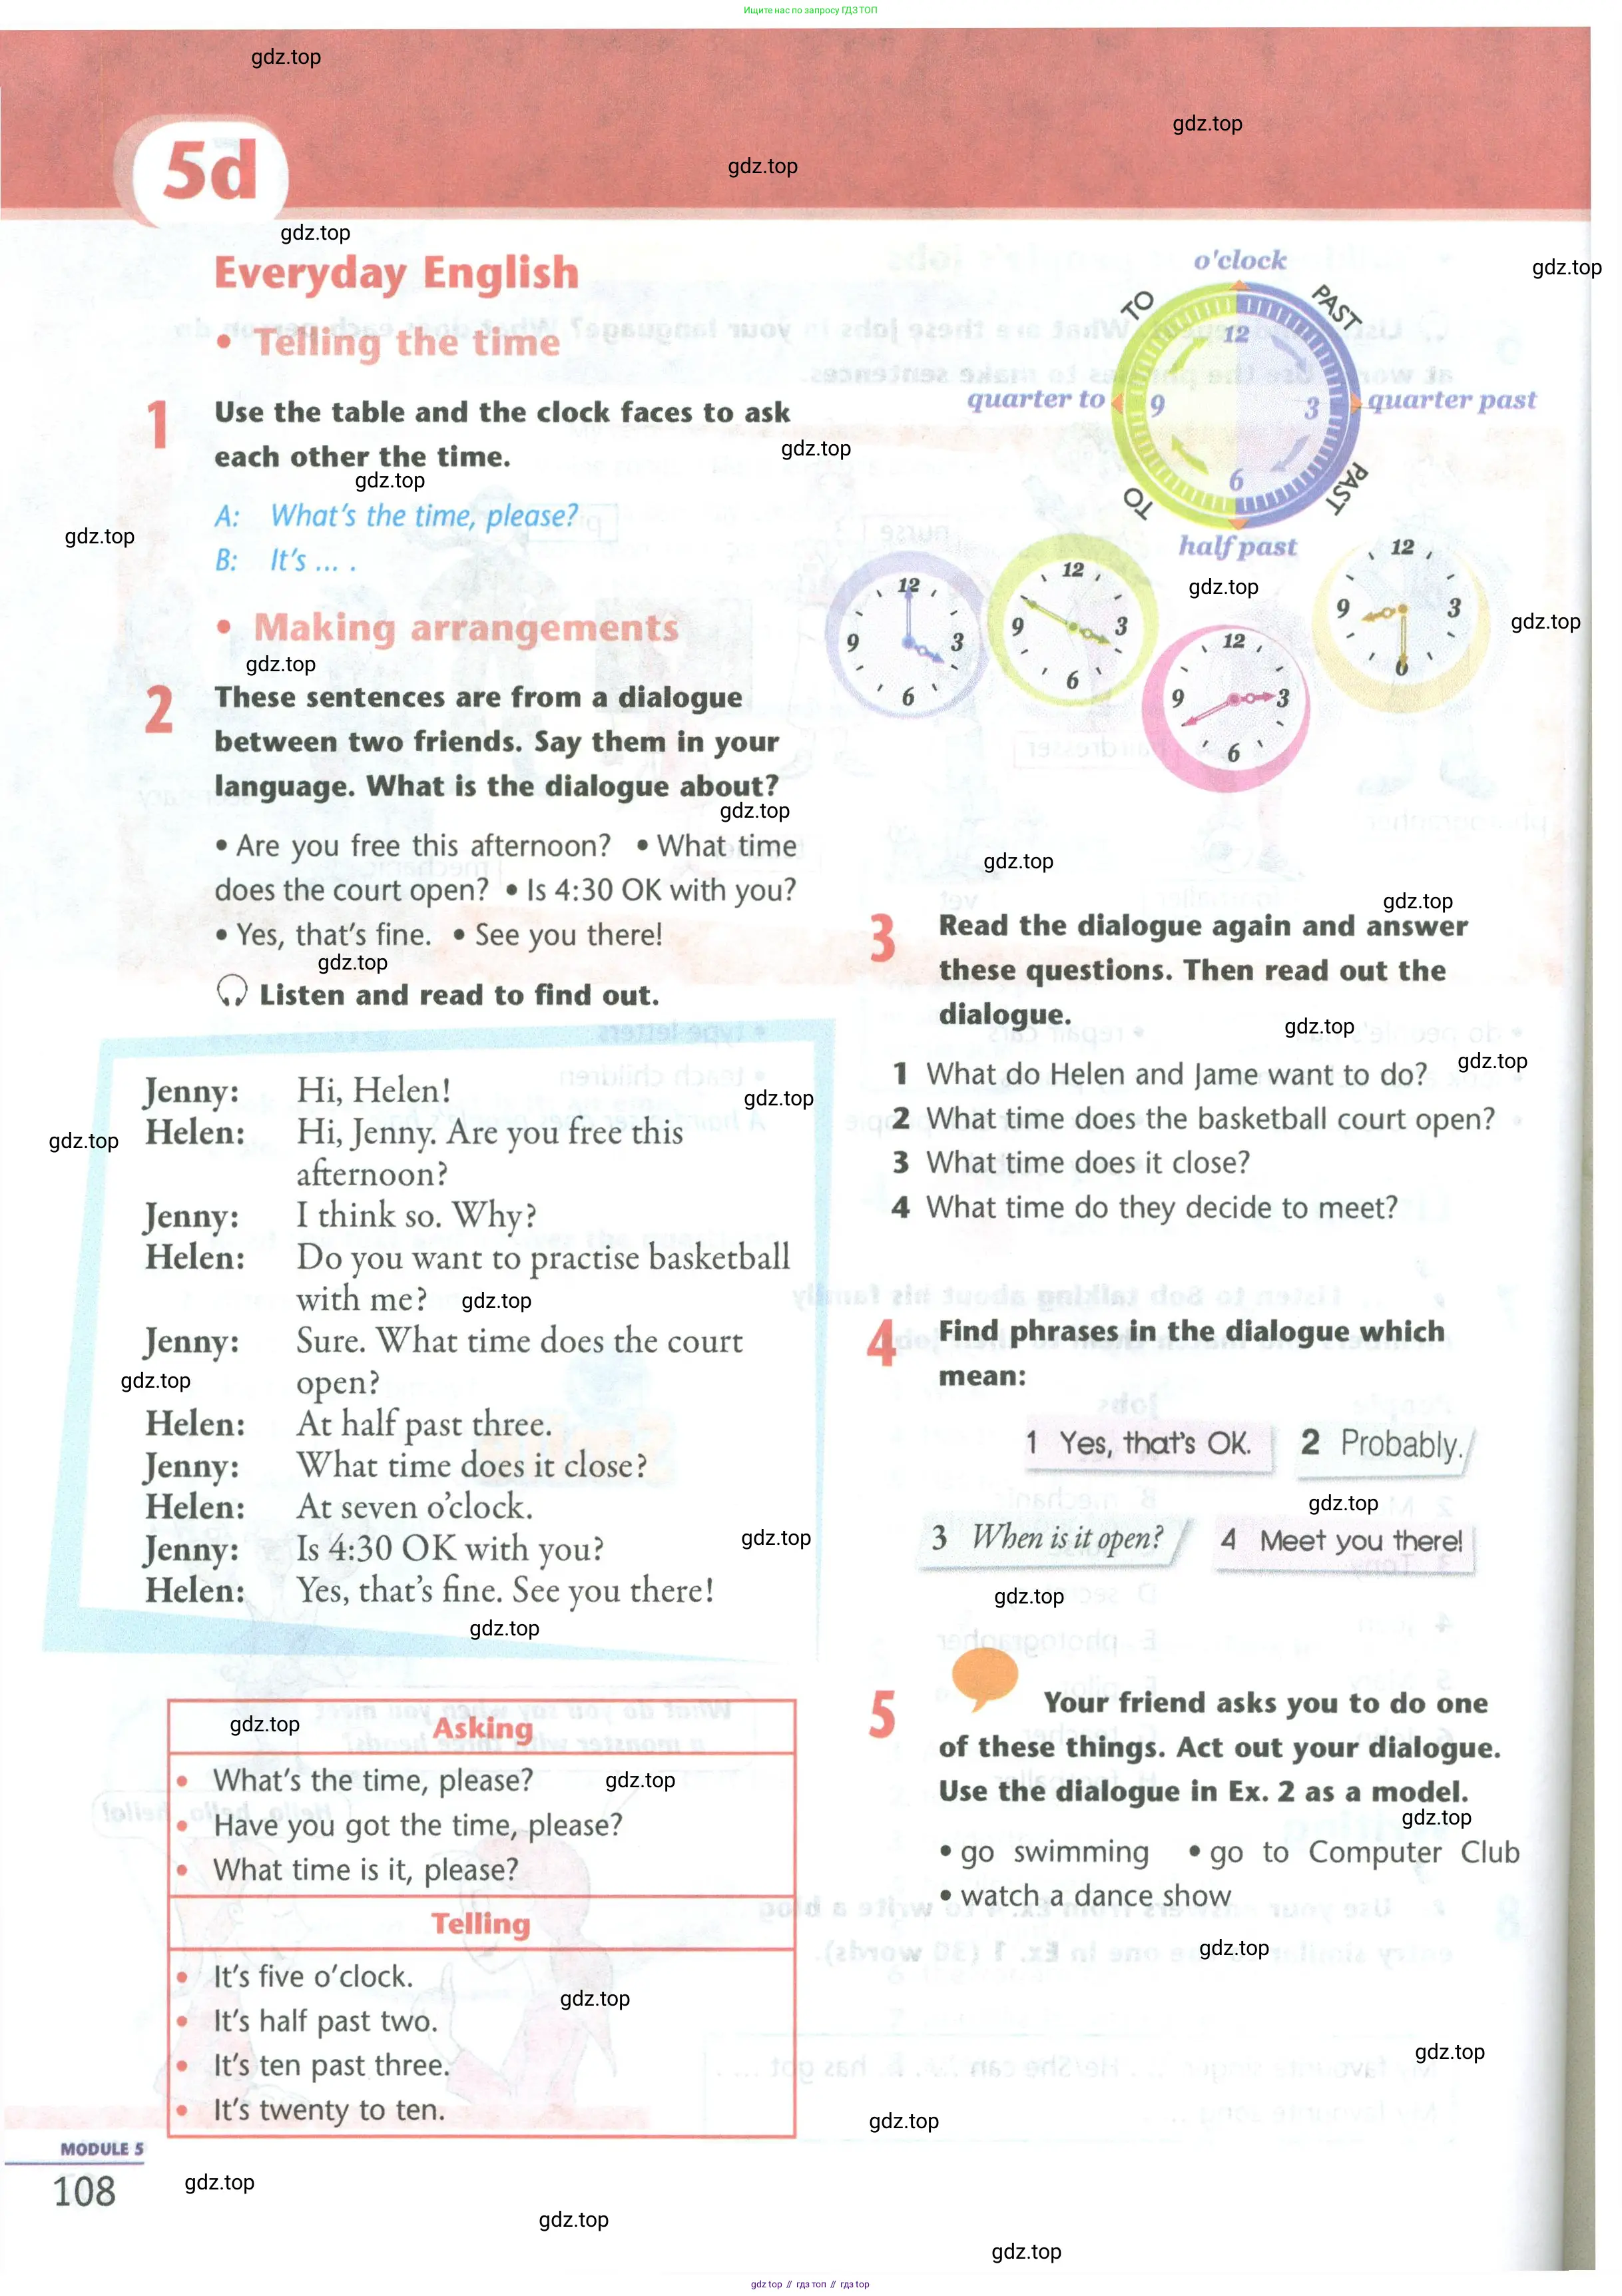 Ищите нас по запросу ГДЗ ТОП
gdz.top
gdz.top
gdz.top
5d
gdz.top
gdz.top
Everyday English
• Telling the time
1 Use the table and the clock faces to ask
each other the time.
gdz.top
gdz.top
A: What's the time, please?
gdz.top
B: It's ... .
o'clock
TO
PAST
12
quarter to
9
3
quarter past
6
TO
PAST
half past
gdz.top
gdz.top
12
9
3
6
12
9
3
6
12
9
3
6
12
9
3
6
• Making arrangements
gdz.top
2 These sentences are from a dialogue
between two friends. Say them in your
language. What is the dialogue about?
gdz.top
• Are you free this afternoon? • What time
does the court open? • Is 4:30 OK with you?
• Yes, that's fine. • See you there!
gdz.top
Listen and read to find out.
Jenny: Hi, Helen!
gdz.top
Helen: Hi, Jenny. Are you free this
gdz.top
afternoon?
Jenny: I think so. Why?
Helen: Do you want to practise basketball
with me?
gdz.top
Jenny: Sure. What time does the court
open?
gdz.top
Helen: At half past three.
Jenny: What time does it close?
Helen: At seven o'clock.
Jenny: Is 4:30 OK with you?
gdz.top
Helen: Yes, that's fine. See you there!
gdz.top
Asking
gdz.top
• What's the time, please?
gdz.top
• Have you got the time, please?
• What time is it, please?
Telling
• It's five o'clock.
gdz.top
• It's half past two.
• It's ten past three.
• It's twenty to ten.
gdz.top
gdz.top
3 Read the dialogue again and answer
these questions. Then read out the
dialogue.
gdz.top
gdz.top
1 What do Helen and Jame want to do?
2 What time does the basketball court open?
3 What time does it close?
4 What time do they decide to meet?
4 Find phrases in the dialogue which
mean:
1 Yes, that's OK.
2 Probably.
gdz.top
3 When is it open?
4 Meet you there!
gdz.top
5 Your friend asks you to do one
of these things. Act out your dialogue.
Use the dialogue in Ex. 2 as a model.
gdz.top
• go swimming • go to Computer Club
• watch a dance show
gdz.top
gdz.top
gdz.top
MODULE 5
108
gdz.top
gdz.top
gdz.top
gdz top // гдз топ // гдз top